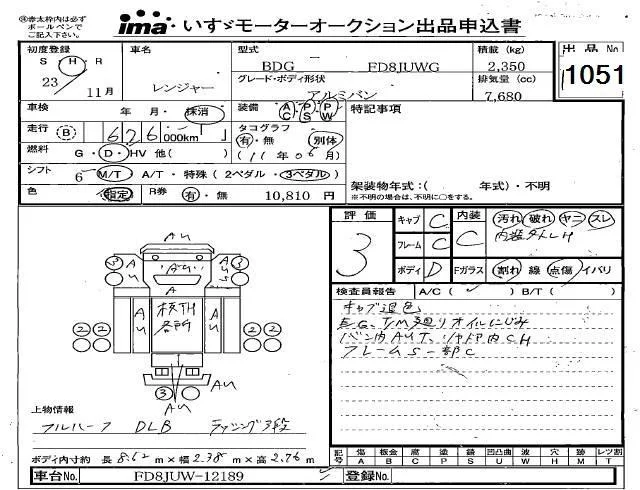 ㊟赤太枠内は必ずボールペンでご記入下さい。
ima いすゞモーターオークション出品申込書
初度登録 車名 型式 積載 (kg) 出品 No
S・H・R レンジャー BDG FD8JUWG 2,350 1051
23 11月 グレード・ボディ形状 排気量 (cc)
アルミバン 7,680
車検 年 月・抹消 装備 AC PS PW 特記事項
走行 B 626 000km タコグラフ 有・無 別体
燃料 G・D・HV 他( ) (11年06月)
シフト 6 M/T・A/T・特殊(2ペダル・3ペダル) 架装物年式:( 年式)・不明
色 指定 R券 有・無 10,810 円 ※不明の場合は、不明に○をする。
評価 キャブ C 内装 汚れ 破れ ヤニ スレ
3 フレーム C C
ボディ D Fガラス 割れ 線 点傷 イバリ
検査員報告 A/C( ✓ ) B/T( )
キャブ退色
フレームS一部C
AU
3 AU AU AU 3
A
AU AU
2 2 2 2
AU
3 AU
上物情報
フルハーフ DLB ラッシング3段
ボディ内寸約 長 8.62 m×幅 2.38 m×高 2.76 m
記号 傷 板金 腐 塗 錆 凹凸曲 波 穴 跡 レツ割
A B C P S U W H M T
車台No. FD8JUW-12189 登録No.